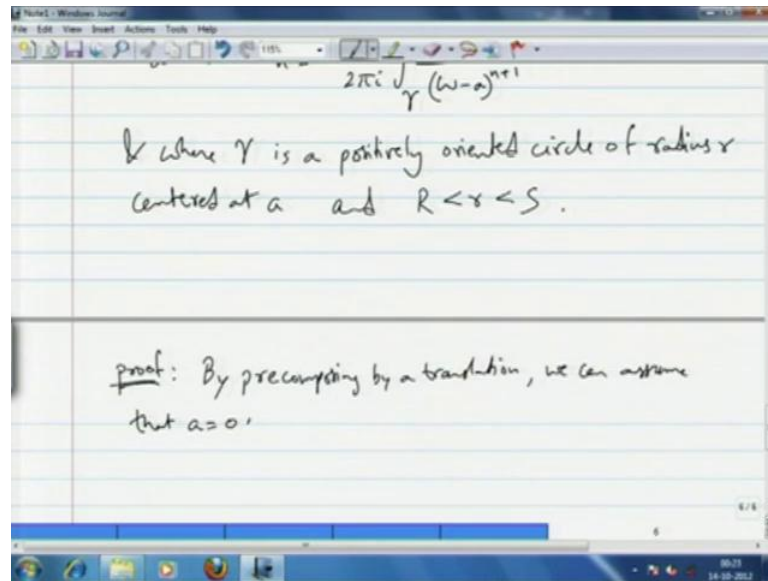 Note1 - Windows Journal
File Edit View Insert Actions Tools Help
115%
2πi ∫γ (w-a)^{n+1}
& where γ is a positively oriented circle of radius r
centered at a and R < r < S .
proof: By precomposing by a translation, we can assume
that a = 0.
6/6
6
00:23
14-10-2012